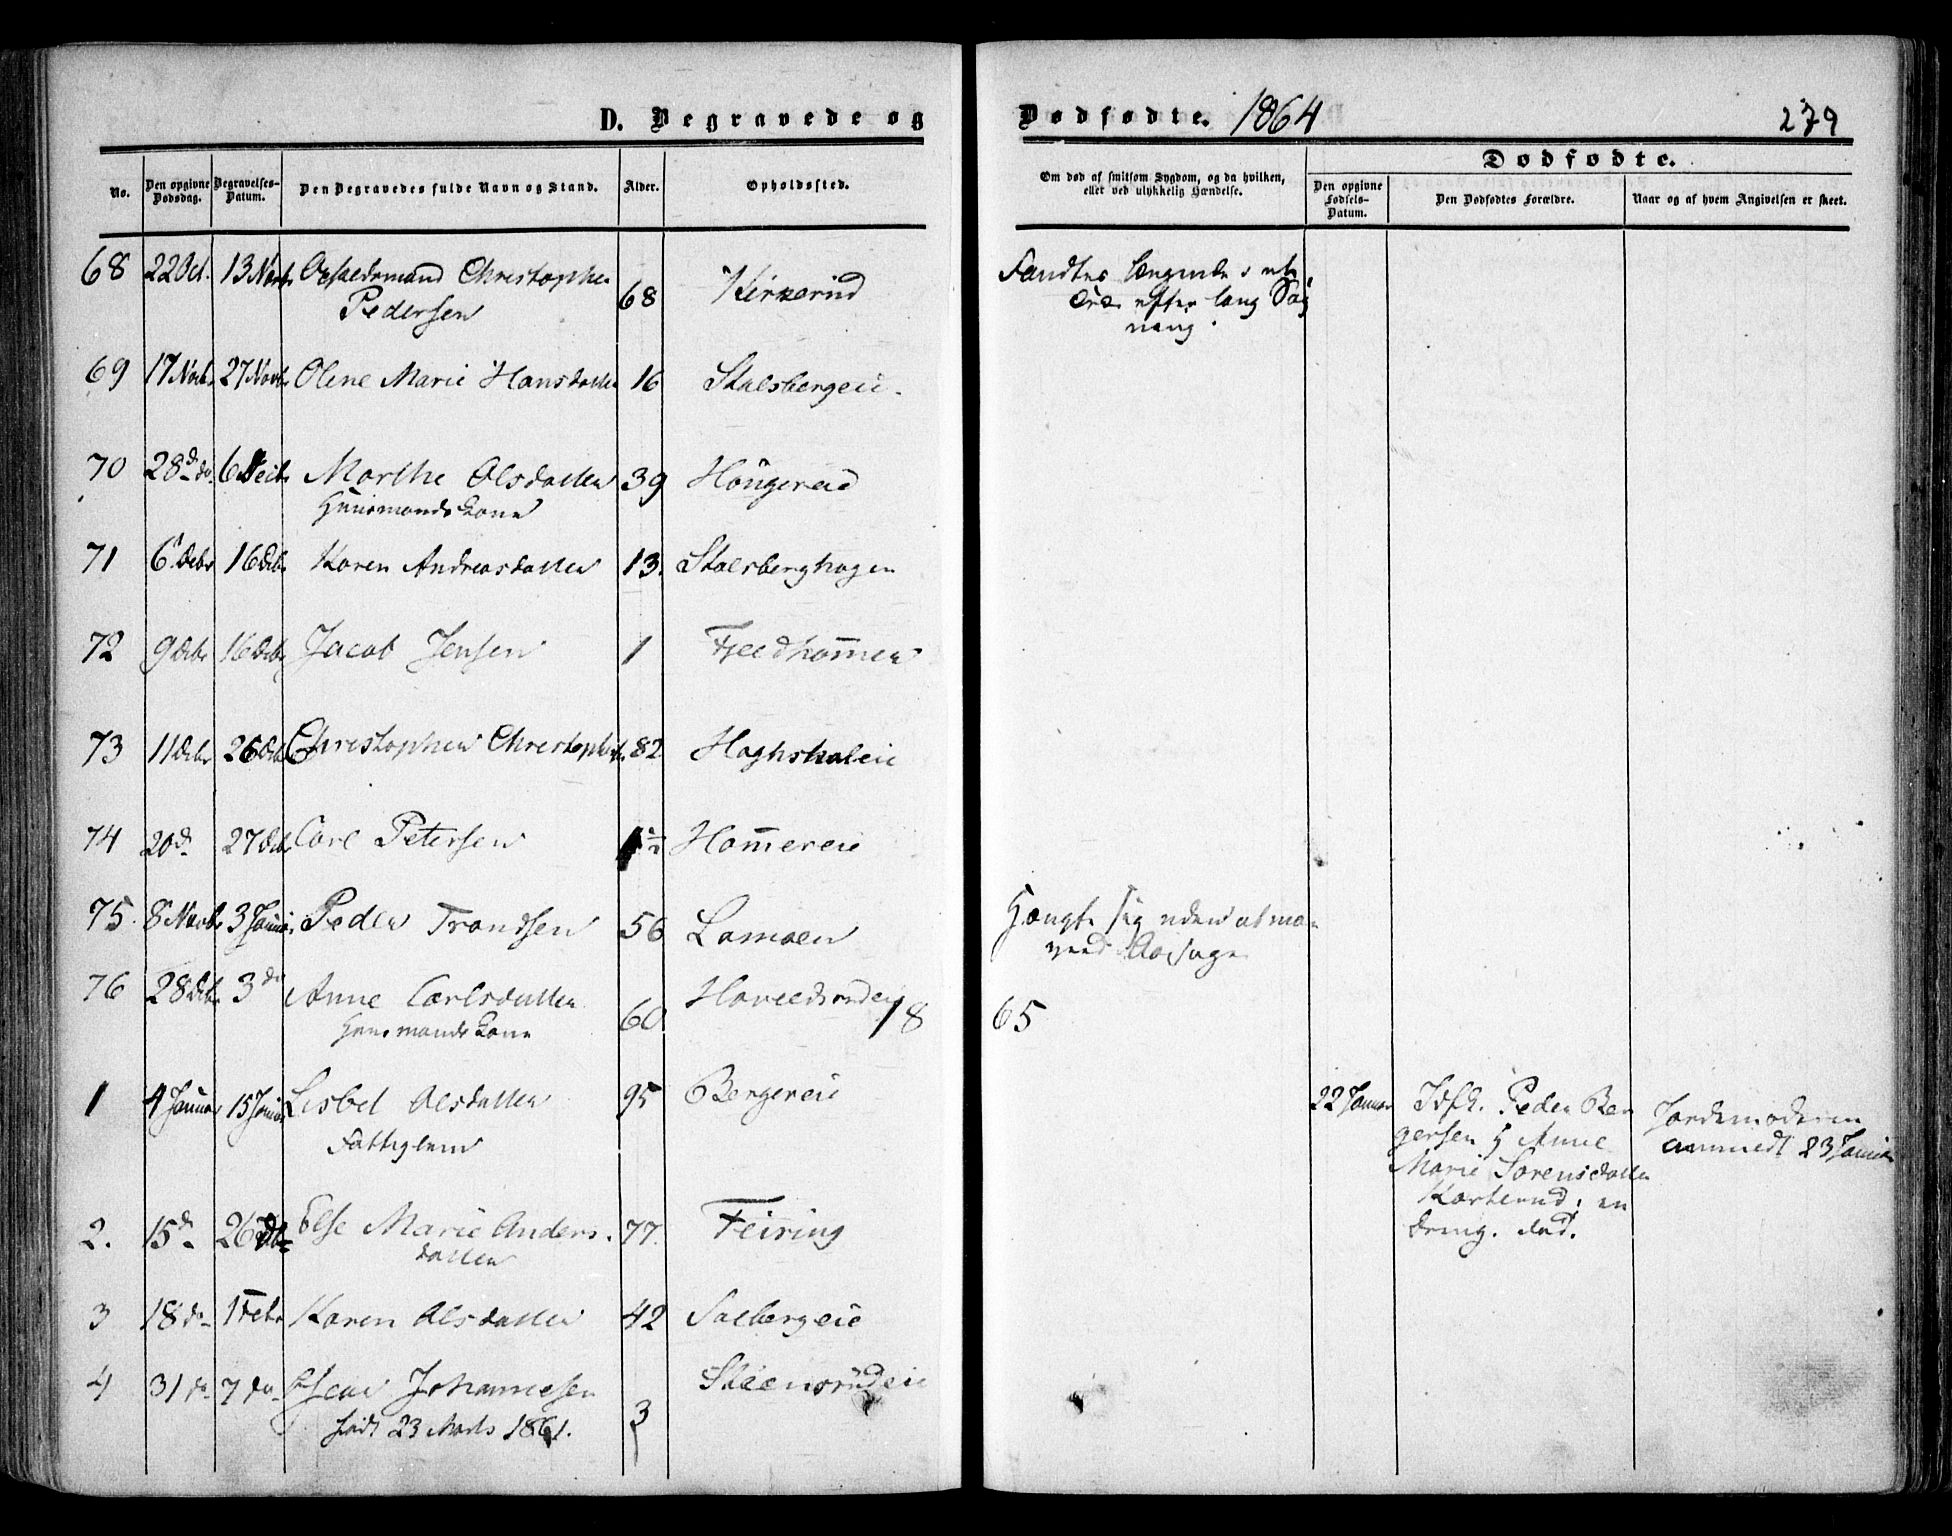 D. Begravede og Dødfødte. 1864 279
No.
Den opgivne Dødsdag.
Begravelses-Datum.
Den Begravedes fulde Navn og Stand.
Alder.
Opholdssted.
Om død af smitsom Sygdom, og da hvilken, eller ved ulykkelig Hændelse.
Dødfødte.
Den opgivne Fødsels-Datum.
Den Dødfødtes Forældre.
Naar og af hvem Angivelsen er skeet.
68 22 Oct. 13 Novbr Christopher
Pedersen 68 Kirkerud
efter lang
69 17 Novbr 27 Novbr Olene Marie Hansdatter 16 Stalsbergeie.
70 28 do 6 Decbr Marthe Olsdatter 39
Huusmands Kone
71 6 Decbr 16 Decbr Karen Andreasdatter 13. Stalsberghagen
72 9 Decbr 16 Decbr Jacob Jensen 1 Fjeldhammer
73 11 Decbr 26 Decbr Christopher Christophers. 82
74 20 d. 27 Decbr Carl Petersen Hammereie
75. 8 Novbr 3 Januar Peder Trondsen 56 Lamoen Hængte sig uden
76 28 Decbr 3 do Anne Carlsdatter
Huusmands Kone 60
18 65
1 4 Januar 15 Januar Lisbet Olsdatter 95 Bergereie
Fattiglem
22 Januar Peder Ber
gersen & Anne
Marie Sørensdatter
en
Dreng. død.
Jordemoderen
anmeldt 23 Januar
2. 15 d. 26 Else Marie Anders
datter 77. Feiring
3 18 do 1 Febr Karen Olsdatter 42 Salbergeie
4 31 do 7 do Johannesen
født 23 Marts 1861. 3 Steensrudeie